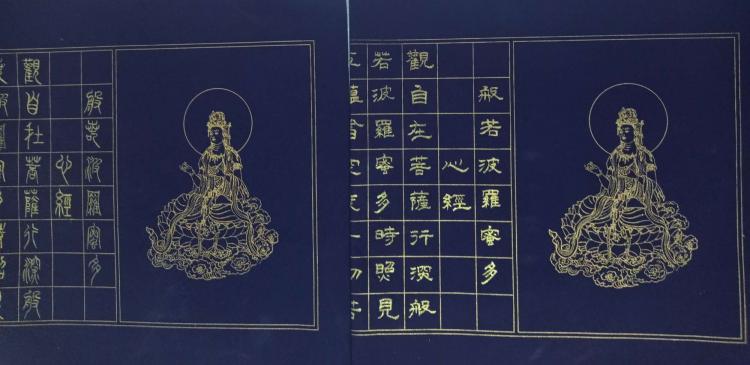 般若波羅蜜多
心經
觀自在菩薩行深般
若波羅蜜多時照見
般若波羅蜜多
心經
觀自在菩薩行深般